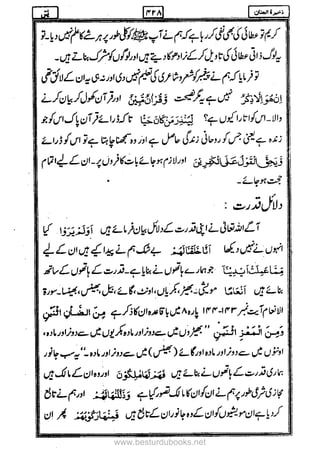 ذخیرۃ الجنان ۴۲۸ یٰسٓ
کریم تو عطائی کی بھی نفی کر رہا ہے کہ ہم نے آپ ﷺ کو کلی طور پر ہر شے کا علم نہیں دیا۔ تو
یہ لوگ ذاتی عطائی کی تاویل کر کے دھوکا دیتے ہیں اور لوگوں کو مشرک بناتے ہیں۔
تو فرمایا کہ ہم نے پیغمبر کو شعر و شاعری کی تعلیم نہیں دی اور نہ ہی یہ ان کے لائق تھی
اِنْ هُوَ اِلَّا ذِكْرٌ نہیں ہے یہ مگر نصیحت وَّقُرْاٰنٌ مُّبِيْنٌ اور قرآن کھول کر بیان کرنے
والا۔ اس کو اتارا کیوں ہے؟ لِّيُنْذِرَ مَنْ كَانَ حَيًّا تاکہ ڈرائے قرآن پاک اس کو جو
زندہ ہے یعنی جس کو روحانی زندگی حاصل ہے اور وہ سمجھنا چاہتا ہے تو اس کو ڈرائے
وَّيَحِقَّ الْقَوْلُ عَلَى الْكٰفِرِيْنَ اور لازم ہو جائے بات کافروں پر۔ ان کے لیے اتمام
حجت ہو جائے۔
دلائل قدرت :
آگے اللہ تعالیٰ نے اپنی قدرت کے دلائل بیان فرمائے ہیں اَوَلَمْ يَرَوْا کیا
انہوں نے نہیں دیکھا اَنَّا خَلَقْنَا لَهُمْ بے شک ہم نے پیدا کیے ہیں ان کے لیے
مِّمَّا عَمِلَتْ اَيْدِيْنَآ جو ہمارے ہاتھوں نے بنایا ہے۔ قدرت کے ہاتھوں کے ساتھ
بنائے ہیں اَنْعَامًا مویشی۔ بھیڑ، بکریاں، اونٹ، گائے، بیل، بھینس، بھینسا۔ سورۃ
الانعام آیت نمبر ۱۴۳-۱۴۴ پارہ ۸ میں باقاعدہ ان کا ذکر ہے مِنَ الضَّاْنِ اثْنَيْنِ
وَمِنَ الْمَعْزِ اثْنَيْنِ "بھیڑوں میں سے دو نر اور مادہ، بکریوں میں سے دو نر اور مادہ،
اونٹوں میں سے دو نر اور مادہ اور گائے (بھینس) میں سے دو نر اور مادہ۔" یہ سب جانور
ہماری قدرت کے ہاتھوں نے بنائے ہیں فَهُمْ لَهَا مٰلِكُوْنَ اور وہ ان کے مالک ہیں
مجازی شرعی طور پر ہم نے ان کو ان کا مالک تصور کیا ہے وَذَلَّلْنٰهَا لَهُمْ اور ہم نے تابع
کر دیا ہے ان مویشیوں کو ان کے وہ جانور ان کے تابع ہیں فَمِنْهَا رَكُوْبُهُمْ پھر ان
www.besturdubooks.net